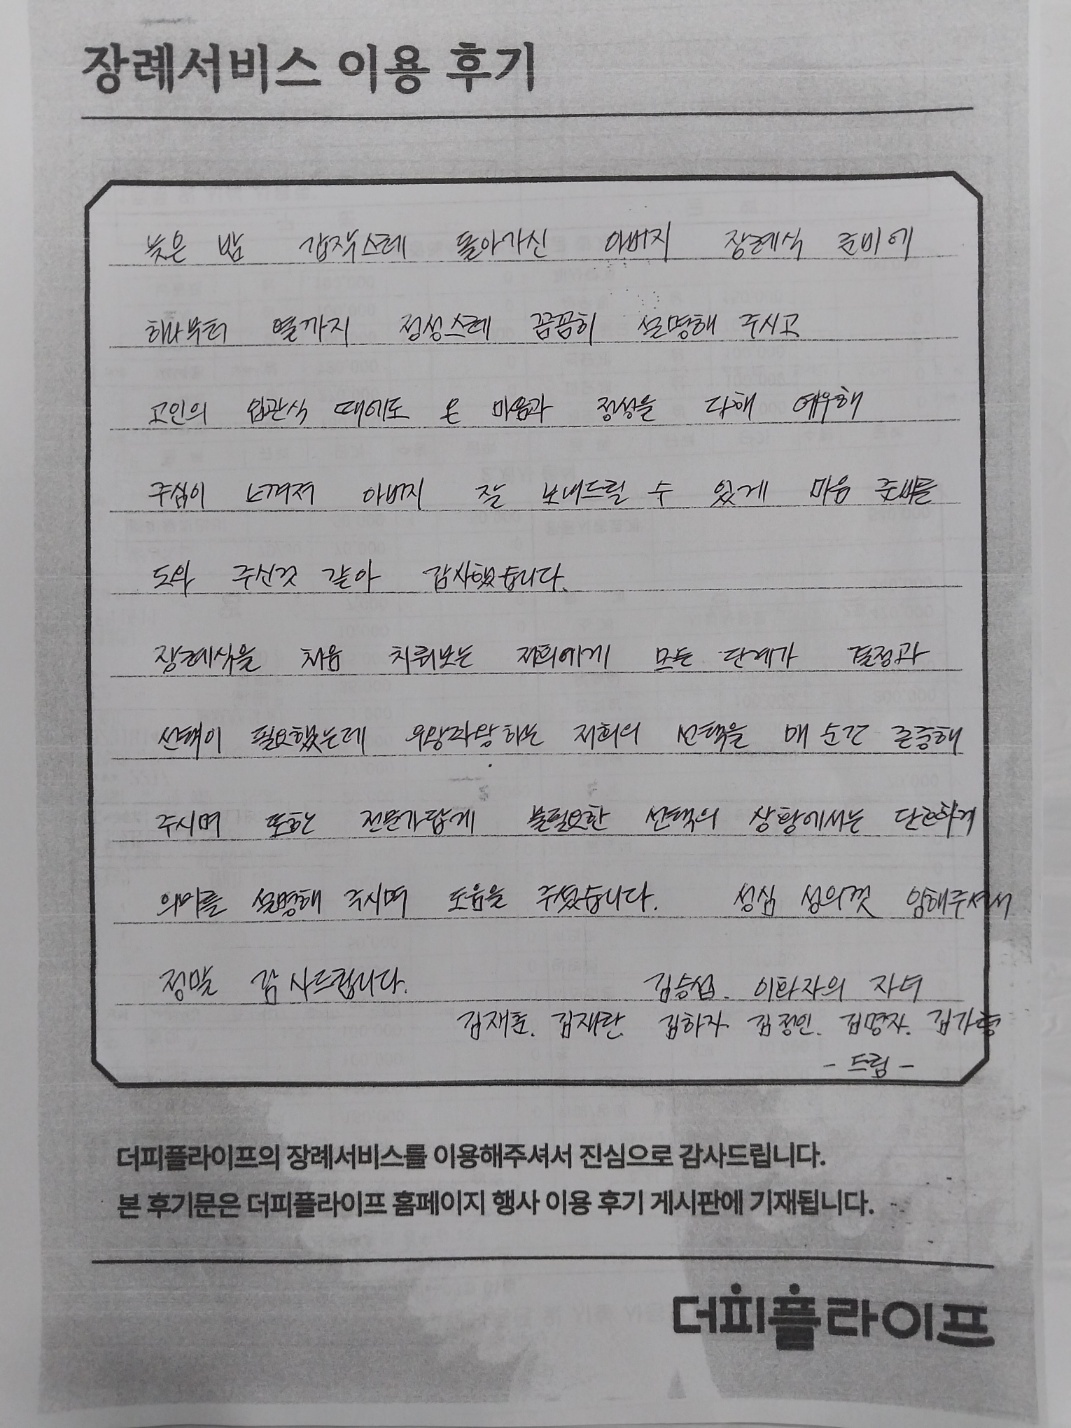 장례서비스 이용 후기
늦은 밤 갑작스레 돌아가신 아버지 장례식 준비에
하나부터 열까지 정성스레 꼼꼼히 설명해 주시고
고인의 입관식 때에도 온 마음과 정성을 다해 예우해
주심이 느껴져 아버지 잘 보내드릴 수 있게 마음 준비를
도와 주신것 같아 감사했습니다.
장례식을 처음 치뤄보는 저희에게 모든 단계가 결정과
선택이 필요했는데 우왕좌왕하는 저희의 선택을 매 순간 존중해
주시며 또한 전문가답게 불필요한 선택의 상황에서는 단호하게
의미를 설명해 주시며 도움을 주셨습니다. 성심 성의껏 임해주셔서
정말 감사드립니다. 김승섭. 이화자의 자녀
김재호. 김재란. 김하자 김정인. 김명자. 김가형
- 드림 -
더피플라이프의 장례서비스를 이용해주셔서 진심으로 감사드립니다.
본 후기문은 더피플라이프 홈페이지 행사 이용 후기 게시판에 기재됩니다.
더피플라이프